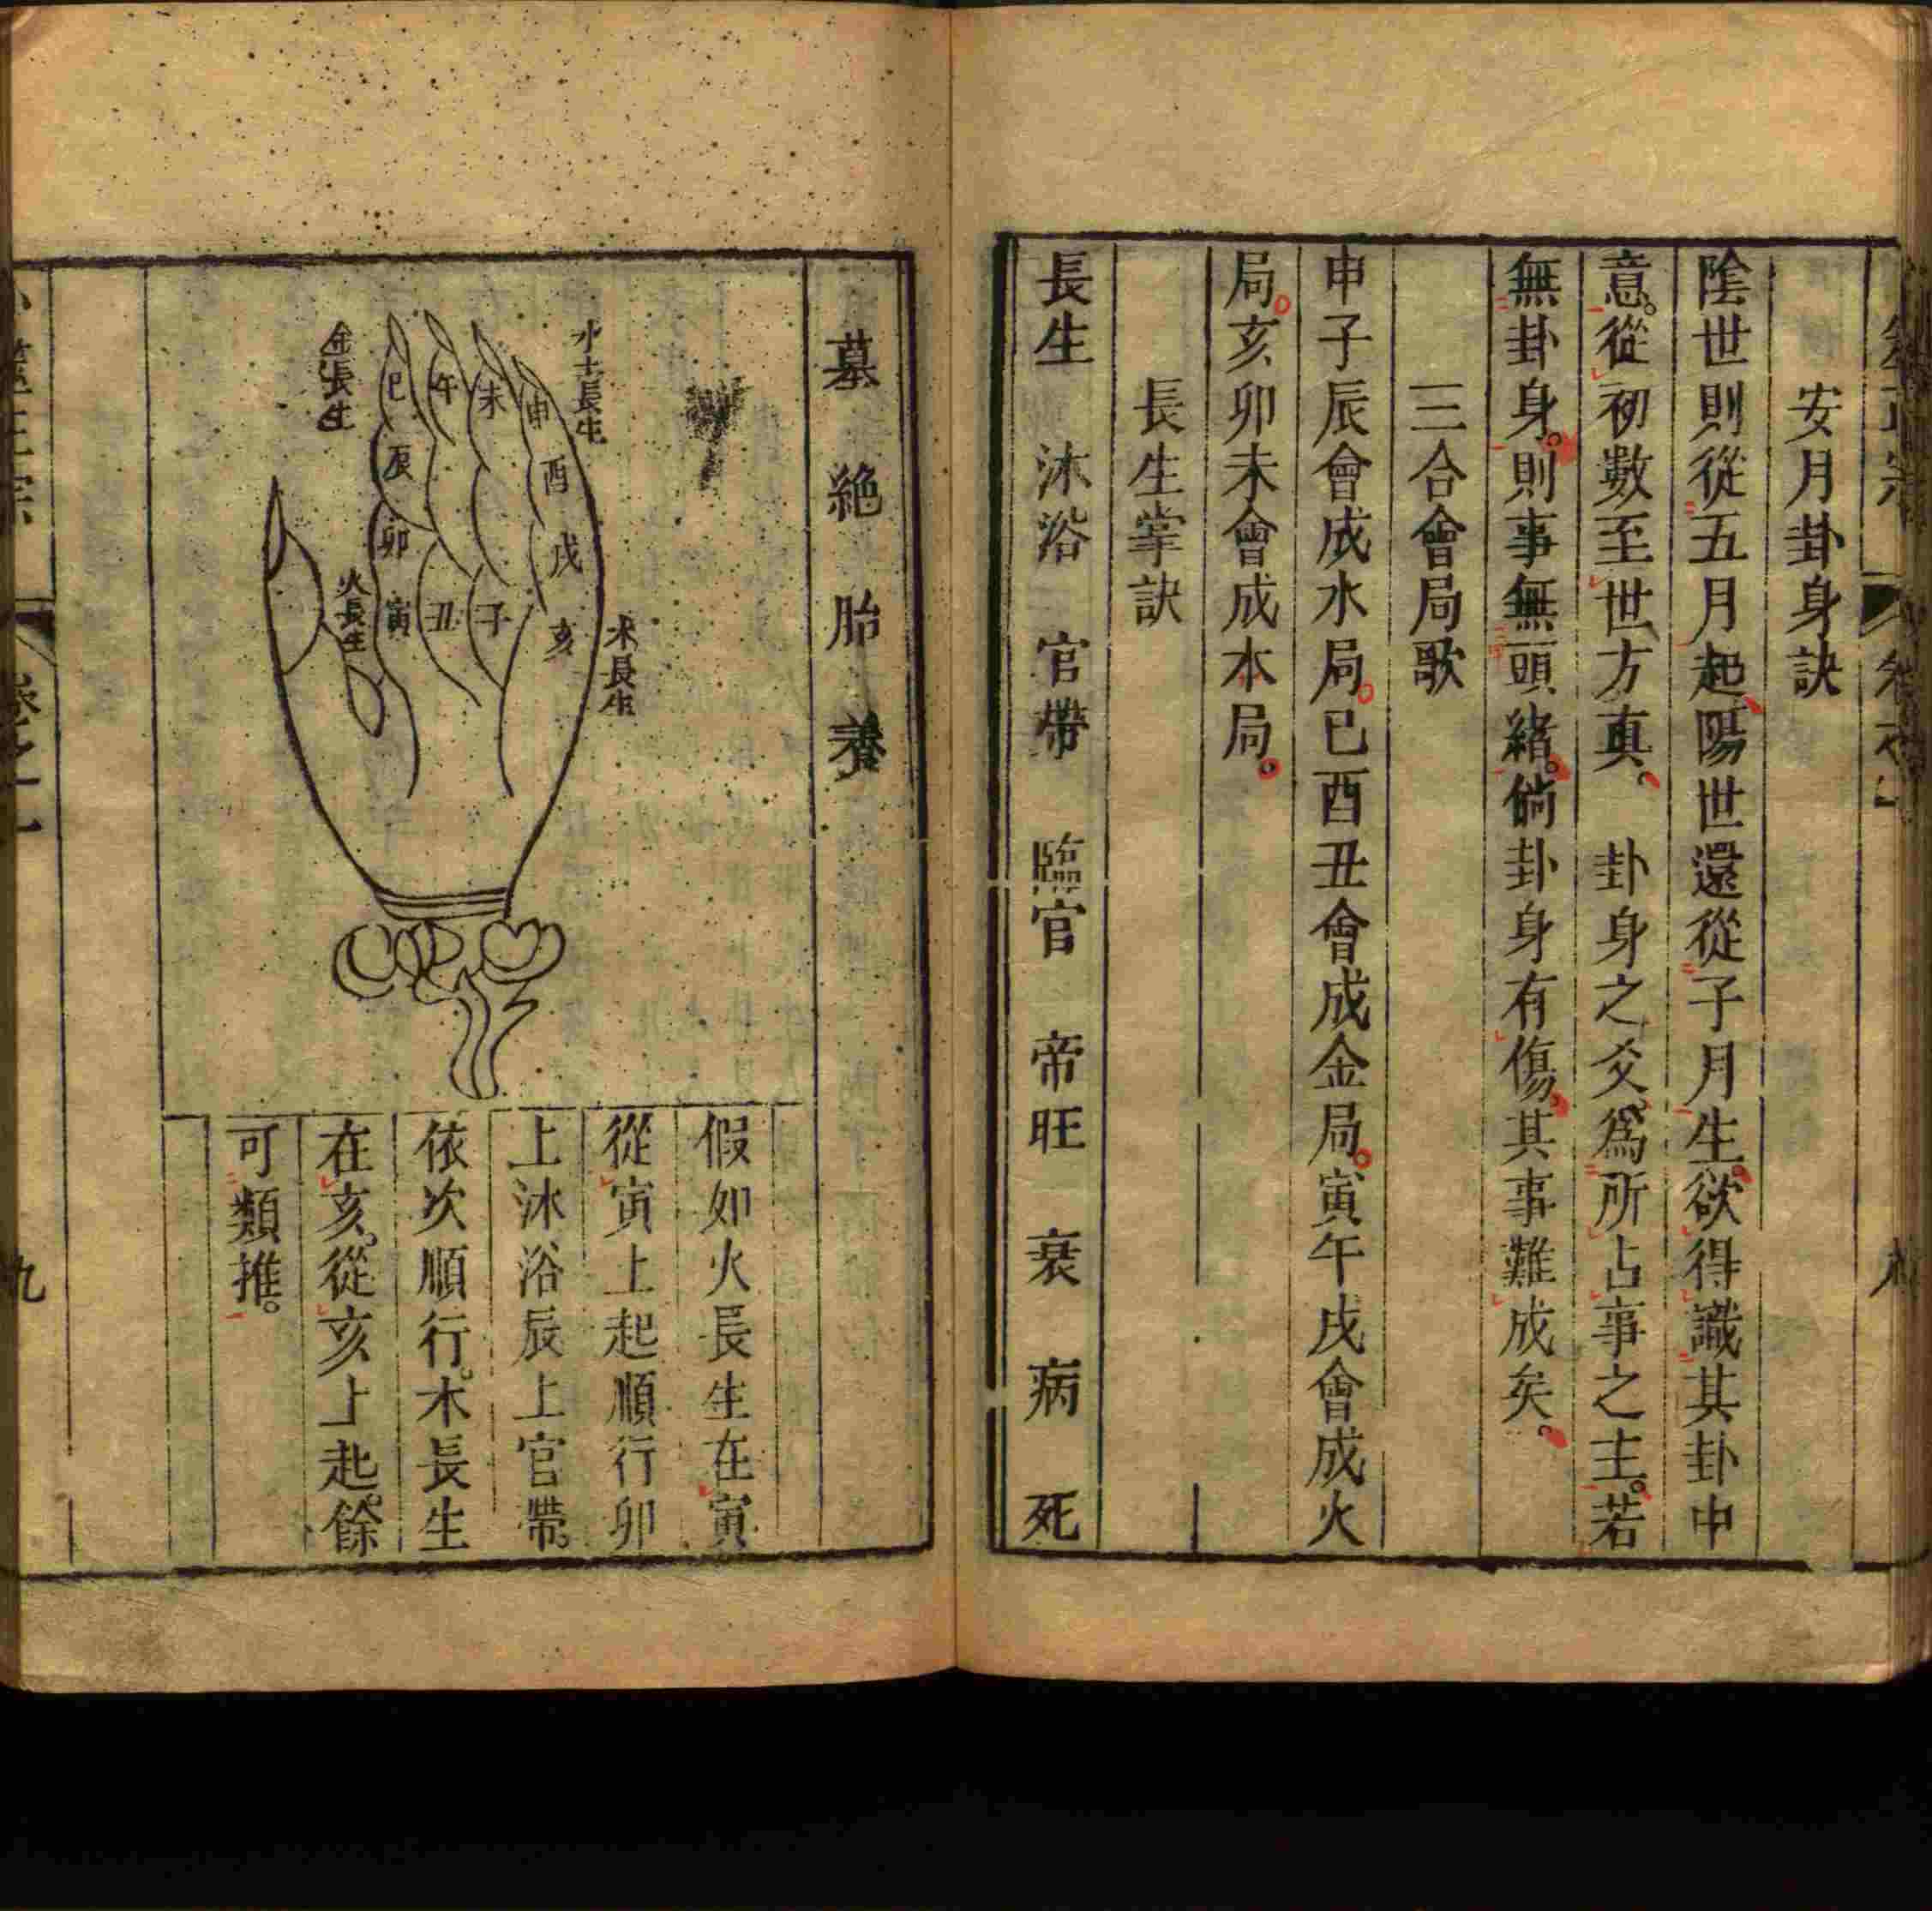 安月卦身訣
陰世則從五月起陽世還從子月生。欲得識其卦中
意。從初數至世方真。 卦身之爻爲所占事之主。若
無卦身。則事無頭緒。倘卦身有傷。其事難成矣。
三合會局歌
申子辰會成水局。巳酉丑會成金局。寅午戌會成火
局。亥卯未會成木局。
長生掌訣
長生 沐浴 官帶 臨官 帝旺 衰 病 死
墓 絕 胎 養
水土長生
金長生
火長生
木長生
巳
午
未
申
辰
酉
卯
戌
寅
丑
子
亥
假如火長生在寅
從寅上起順行卯
上沐浴辰上官帶。
依次順行。木長生
在亥。從亥上起。餘
可類推。
九